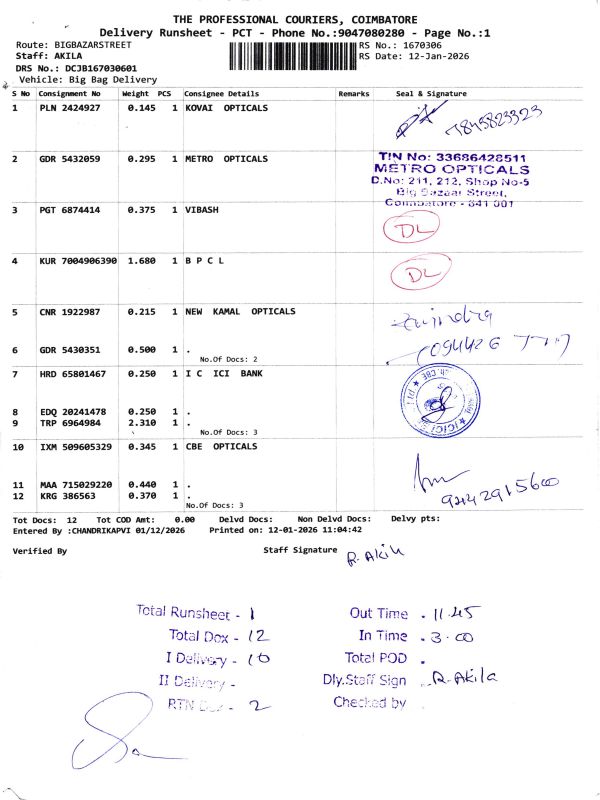 THE PROFESSIONAL COURIERS, COIMBATORE
Delivery Runsheet - PCT - Phone No.:9047080280 - Page No.:1
Route: BIGBAZARSTREET RS No.: 1670306
Staff: AKILA RS Date: 12-Jan-2026
DRS No.: DCJB167030601
Vehicle: Big Bag Delivery
S No Consignment No Weight PCS Consignee Details Remarks Seal & Signature
1 PLN 2424927 0.145 1 KOVAI OPTICALS 7845823323
2 GDR 5432059 0.295 1 METRO OPTICALS
TIN No: 33686428511
METRO OPTICALS
D.No: 211, 212, Shop No-5
Big Bazaar Street,
Coimbatore - 641 001
3 PGT 6874414 0.375 1 VIBASH DL
4 KUR 7004906390 1.680 1 B P C L DL
5 CNR 1922987 0.215 1 NEW KAMAL OPTICALS
6 GDR 5430351 0.500 1 .
No.Of Docs: 2
7 HRD 65801467 0.250 1 I C ICI BANK
8 EDQ 20241478 0.250 1 .
9 TRP 6964984 2.310 1 .
No.Of Docs: 3
10 IXM 509605329 0.345 1 CBE OPTICALS
11 MAA 715029220 0.440 1 .
12 KRG 386563 0.370 1 .
No.Of Docs: 3
Tot Docs: 12 Tot COD Amt: 0.00 Delvd Docs: Non Delvd Docs: Delvy pts:
Entered By :CHANDRIKAPVI 01/12/2026 Printed on: 12-01-2026 11:04:42
Verified By Staff Signature R. Akila
Total Runsheet - 1 Out Time . 11.45
Total Dox - 12 In Time . 3.00
I Delivery - 10 Total POD .
II Delivery - Dly.Staff Sign R. Akila
RTN Dox - 2 Checked by